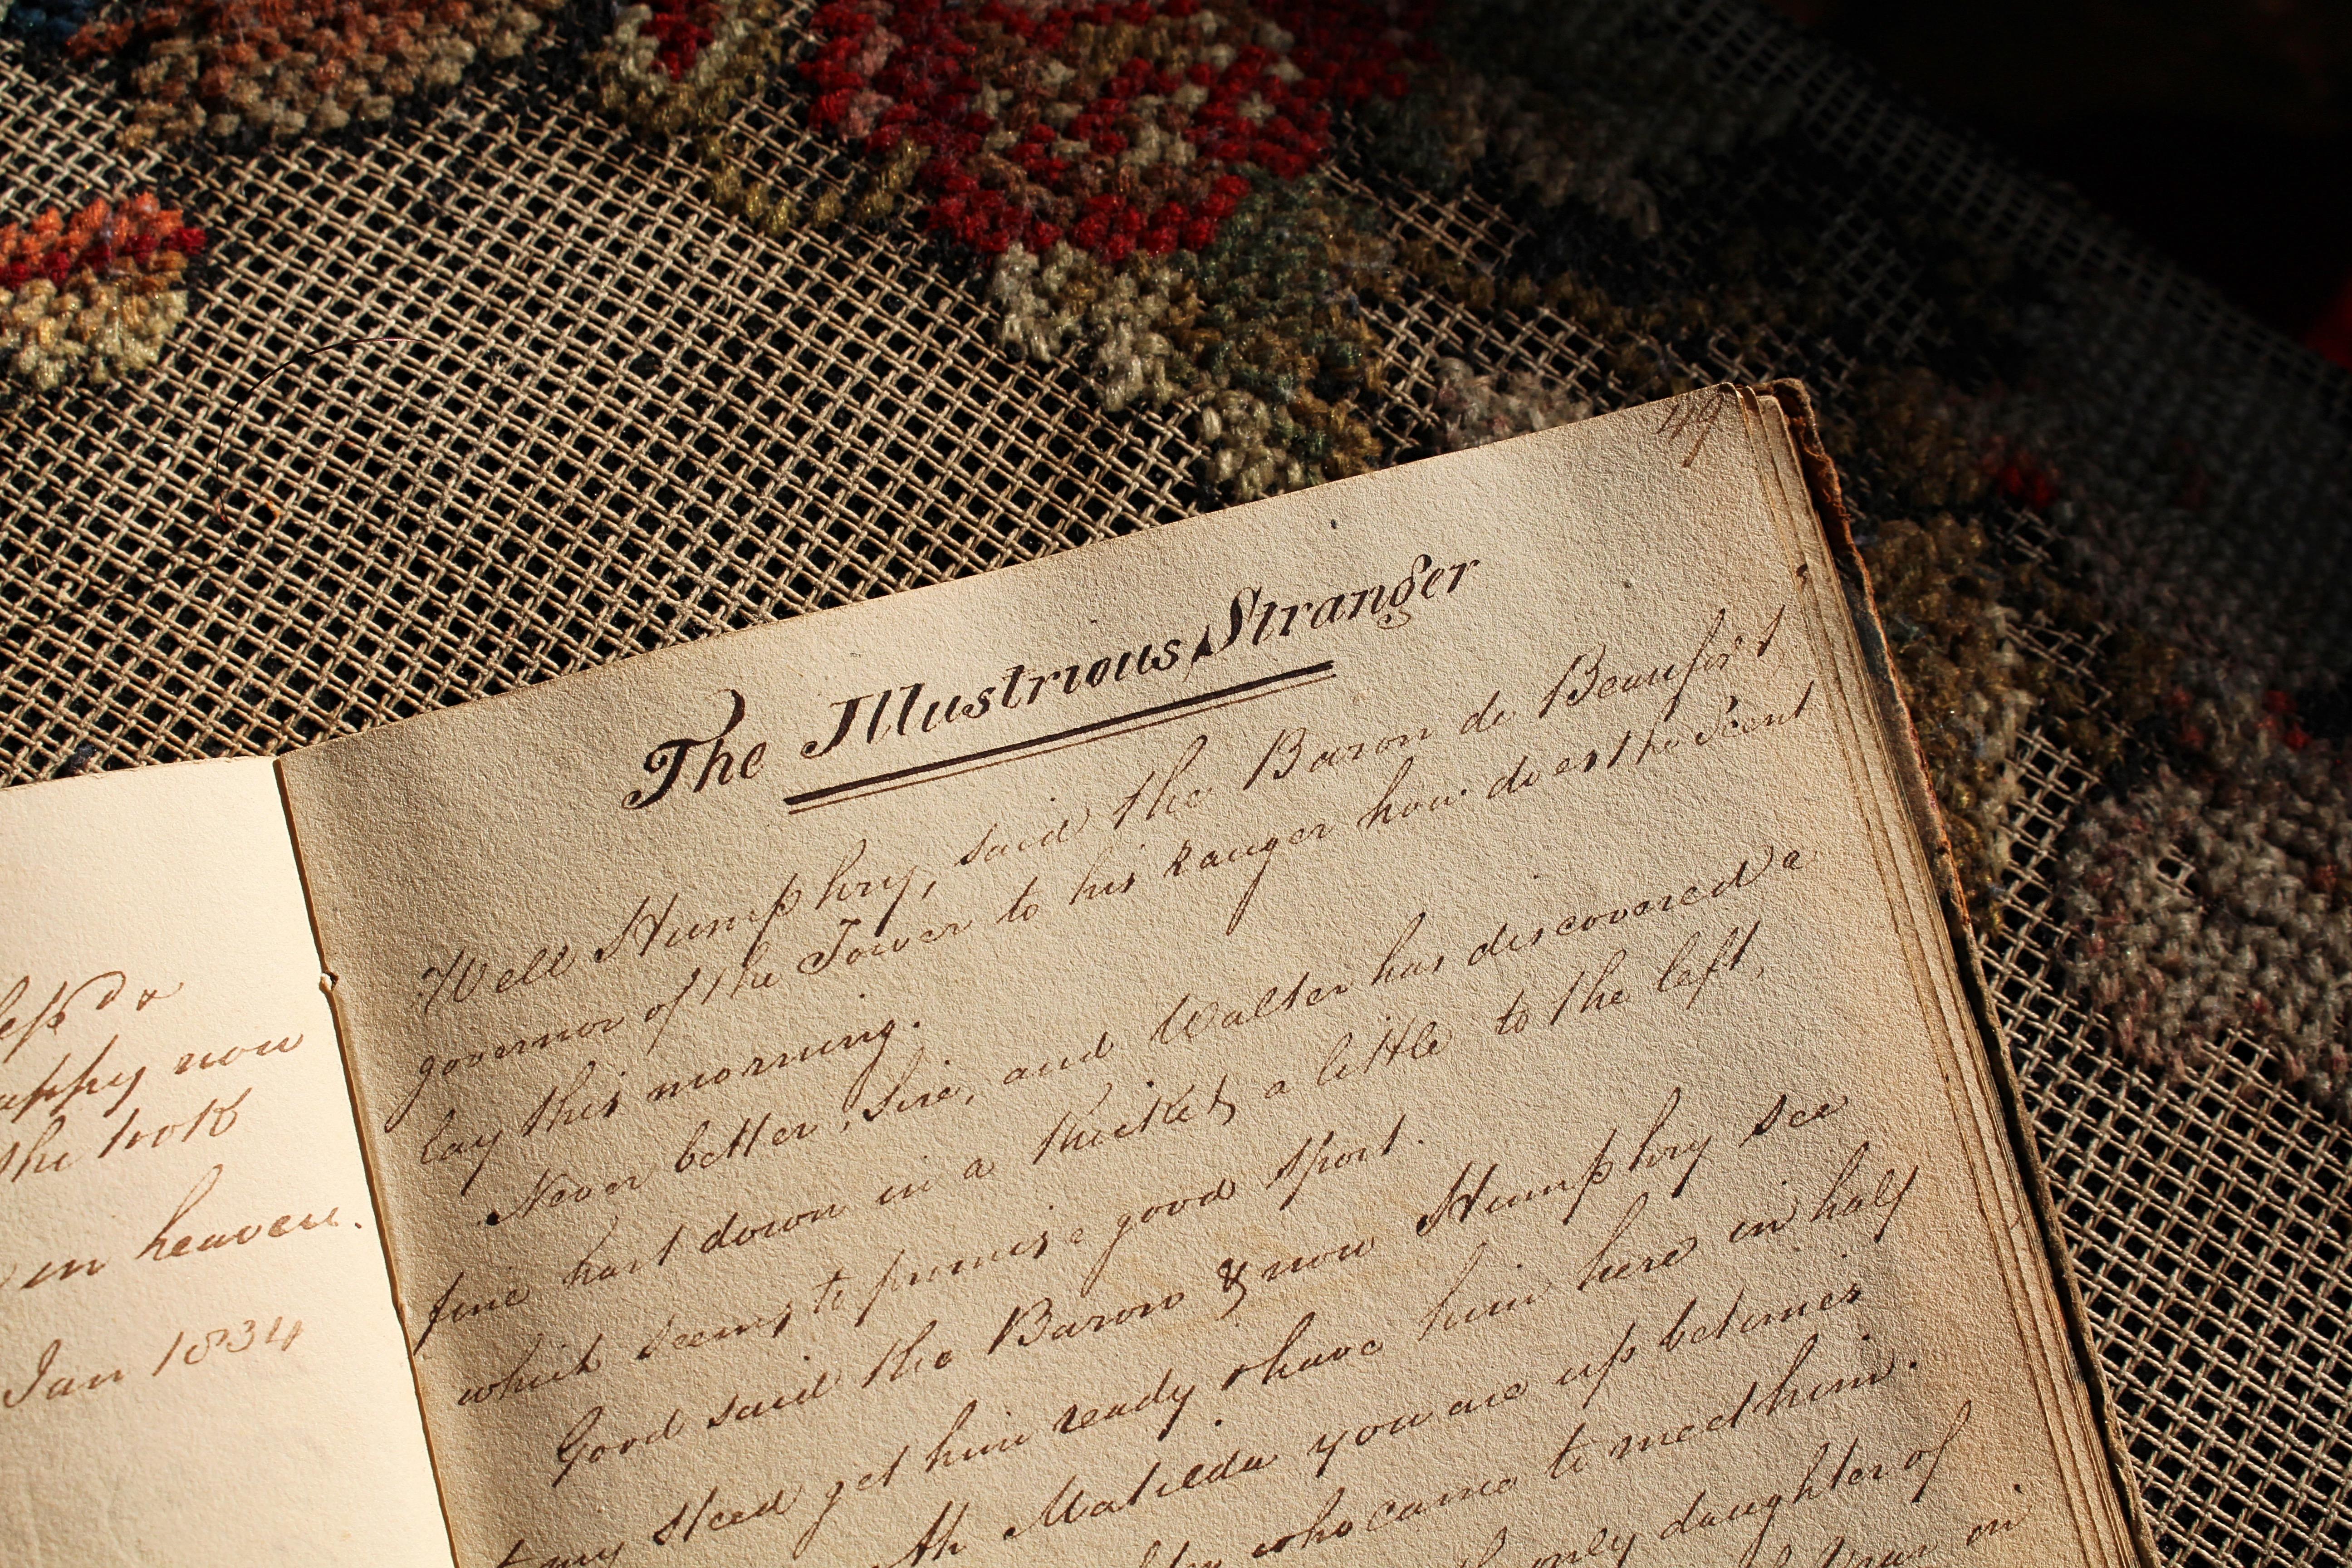 & 
now
the
in heaven.
Jan 1834
49
The Illustrious Stranger
Well Humphry, said the Baron de Beaufort
governor of the Tower to his Ranger how does the Scent
lay this morning.
Never better, Sire, and Walter has discovered a
fine hart down in a thicket, a little to the left,
which seems to promise good sport.
Good said the Baron & now Humphry see
my steed get him ready & have him here in half
Matilda you are up betimes
who came to meet him.
only daughter of